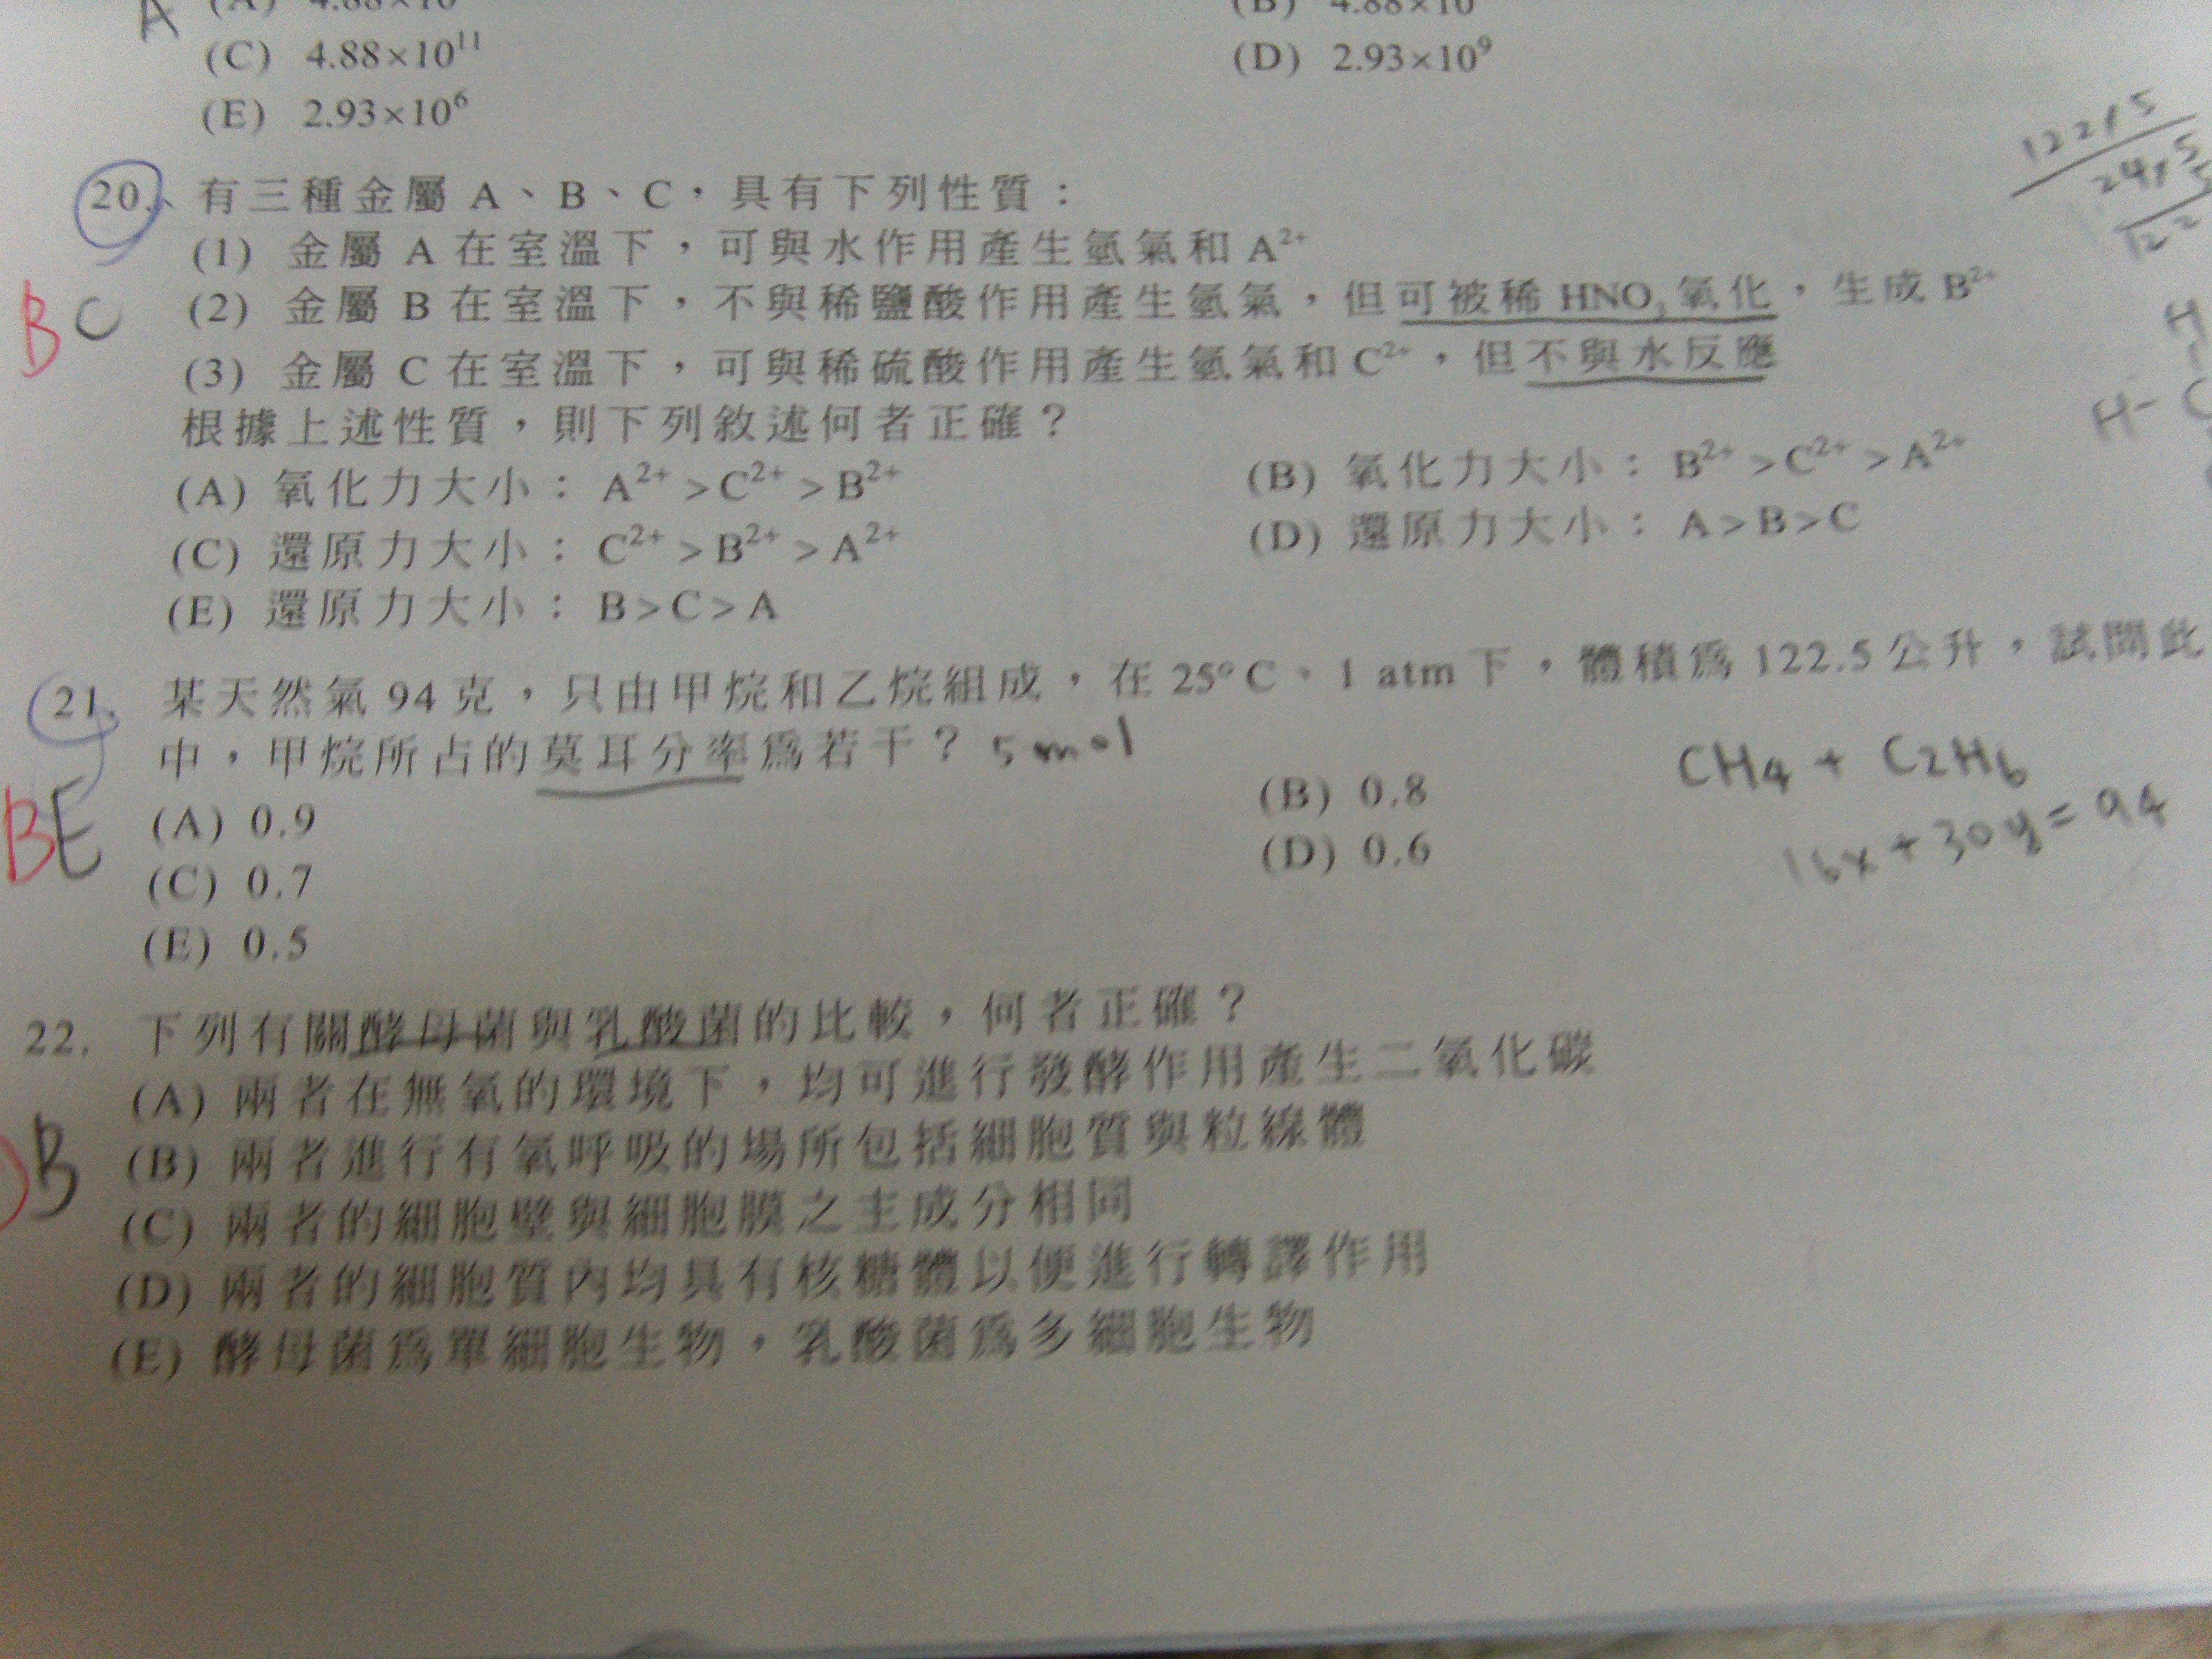 A
(C) 4.88×10¹¹
(D) 2.93×10⁹
(E) 2.93×10⁶
122.5
24.5
20. 有三種金屬 A、B、C,具有下列性質:
(1) 金屬 A 在室溫下,可與水作用產生氫氣和 A²⁺
BC
(2) 金屬 B 在室溫下,不與稀鹽酸作用產生氫氣,但可被稀 HNO₃ 氧化,生成 B²⁺
(3) 金屬 C 在室溫下,可與稀硫酸作用產生氫氣和 C²⁺,但不與水反應
H
H-C
根據上述性質,則下列敘述何者正確?
(A) 氧化力大小: A²⁺>C²⁺>B²⁺
(B) 氧化力大小: B²⁺>C²⁺>A²⁺
(C) 還原力大小: C²⁺>B²⁺>A²⁺
(D) 還原力大小: A>B>C
(E) 還原力大小: B>C>A
21. 某天然氣 94 克,只由甲烷和乙烷組成,在 25°C、1 atm 下,體積為 122.5 公升,試問此
中,甲烷所占的莫耳分率為若干? 5 mol
BE
(A) 0.9
(B) 0.8
(C) 0.7
(D) 0.6
(E) 0.5
CH4 + C2H6
16x + 30y = 94
22. 下列有關酵母菌與乳酸菌的比較,何者正確?
(A) 兩者在無氧的環境下,均可進行發酵作用產生二氧化碳
B
(B) 兩者進行有氧呼吸的場所包括細胞質與粒線體
(C) 兩者的細胞壁與細胞膜之主成分相同
(D) 兩者的細胞質內均具有核糖體以便進行轉譯作用
(E) 酵母菌為單細胞生物,乳酸菌為多細胞生物